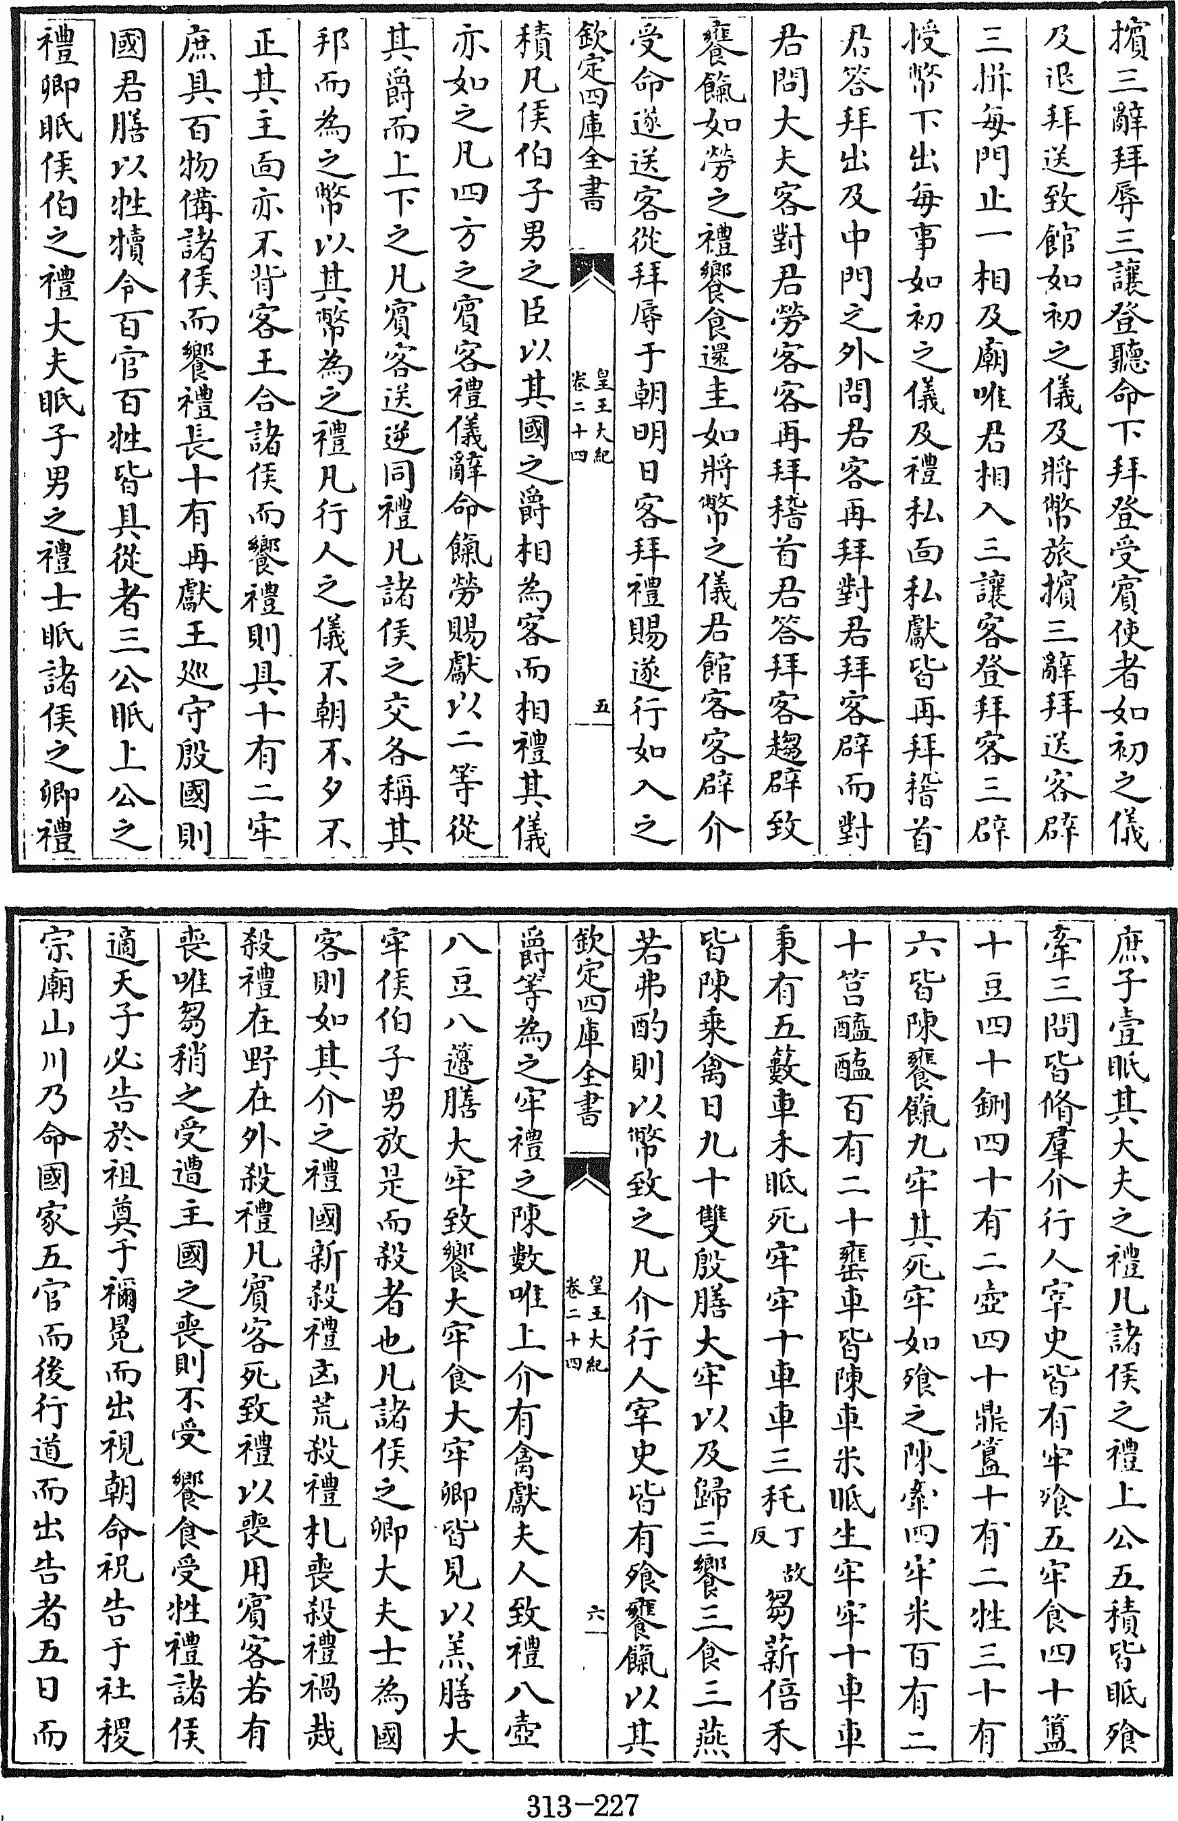 擯三辭拜辱三讓登聽命下拜登受賓使者如初之儀
及退拜送致館如初之儀及將幣旅擯三辭拜送客辟
三揖每門止一相及廟唯君相入三讓客登拜客三辟
授幣下出每事如初之儀及禮私面私獻皆再拜稽首
君答拜出及中門之外問君客再拜對君拜客辟而對
君問大夫客對君勞客客再拜稽首君答拜客趨辟致
饔餼如勞之禮饗食還圭如將幣之儀君館客客辟介
受命遂送客從拜辱于朝明日客拜禮賜遂行如入之
欽定四庫全書
皇王大紀
卷二十四
五
積凡侯伯子男之臣以其國之爵相為客而相禮其儀
亦如之凡四方之賓客禮儀辭命餼勞賜獻以二等從
其爵而上下之凡賓客送逆同禮凡諸侯之交各稱其
邦而為之幣以其幣為之禮凡行人之儀不朝不夕不
正其主面亦不背客王合諸侯而饗禮則具十有二牢
庶具百物備諸侯而饗禮長十有再獻王巡守殷國則
國君膳以牲犢令百官百牲皆具從者三公眂上公之
禮卿眂侯伯之禮大夫眂子男之禮士眂諸侯之卿禮
庶子壹眂其大夫之禮凡諸侯之禮上公五積皆眂飱
牽三問皆脩羣介行人宰史皆有牢飱五牢食四十簠
十豆四十鉶四十有二壺四十鼎簋十有二牲三十有
六皆陳饔餼九牢其死牢如飱之陳牽四牢米百有二
十筥醯醢百有二十罋車皆陳車米眂生牢牢十車車
秉有五籔車禾眂死牢牢十車車三秅丁故反芻薪倍禾
皆陳乗禽日九十雙殷膳大牢以及歸三饗三食三燕
若弗酌則以幣致之凡介行人宰史皆有飱饔餼以其
欽定四庫全書
皇王大紀
卷二十四
六
爵等為之牢禮之陳數唯上介有禽獻夫人致禮八壺
八豆八籩膳大牢致饗大牢食大牢卿皆見以羔膳大
牢侯伯子男放是而殺者也凡諸侯之卿大夫士為國
客則如其介之禮國新殺禮凶荒殺禮札喪殺禮禍烖
殺禮在野在外殺禮凡賓客死致禮以喪用賓客若有
喪唯芻稍之受遭主國之喪則不受饗食受牲禮諸侯
適天子必告於祖奠于禰冕而出視朝命祝告于社稷
宗廟山川乃命國家五官而後行道而出告者五日而
313-227